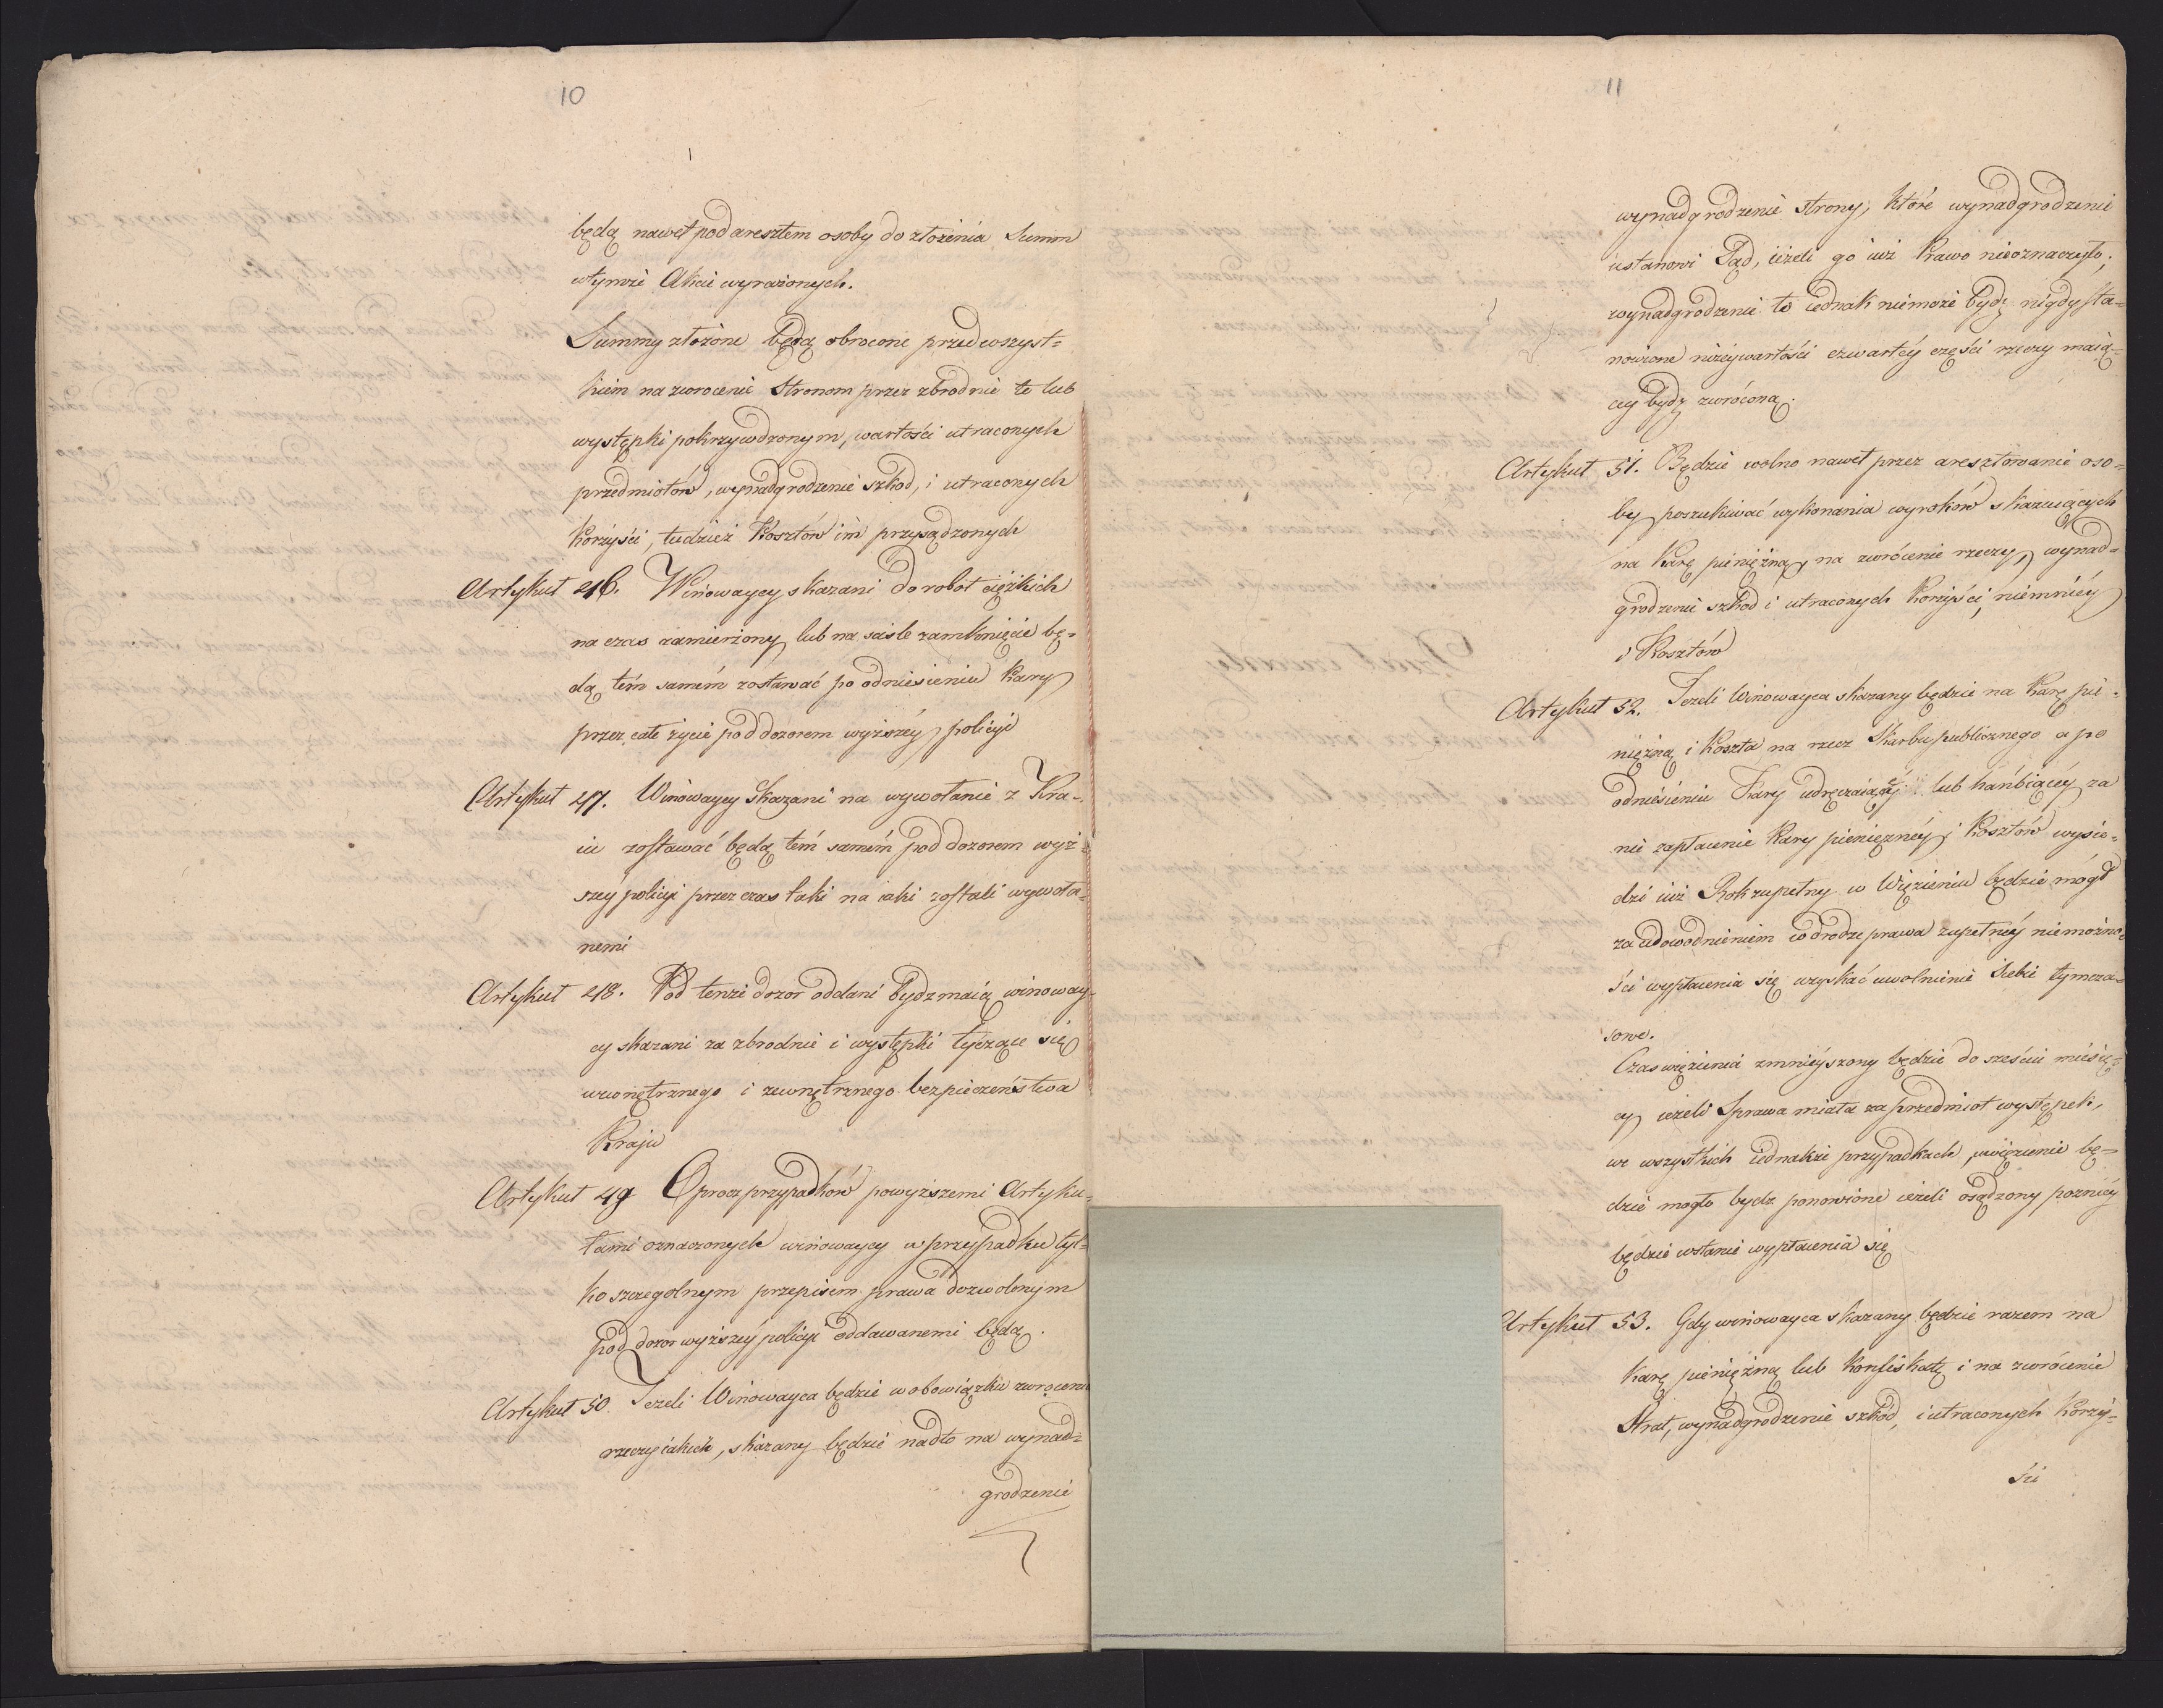 10
będą nawet pod aresztem osoby do złożenia Summ
wtymże Akcie wyrażonych.
Summy złożone będą obrocone przedewszyst=
kiem na zwrocenie Stronom przez zbrodnie te lub
występki pokrzywdzonym, wartości utraconych
przedmiotów, wynadgrodzenie szkod, i utraconych
korzyści, tudzież Kosztów im przysądzonych
Artykuł 46. Winowaycy skazani do robot ciężkich
na czas zamierzony lub na scisłe zamknięcie bę=
dą tém samém zostawać po odniesieniu Kary
przez całe życie pod dozorem wyższéy policyi
Artykuł 47. Winowaycy Skazani na wywołanie z Kra-
iu zostawać będą tém samém pod dozorem wyż=
széy policyi przez czas taki na iaki zostali wywoła=
nemi
Artykuł 48. Pod tenże dozor oddani bydz maią winoway-
cy skazani za zbrodnie i występki tyczące się
wewnętrznego i zewnętrznego bezpieczeństwa
Kraju
Artykuł 49 Oprocz przypadków powyższemi Artyku=
łami oznaczonych winowaycy w przypadku tyl=
ko szczegolnym przepisem prawa dozwolonym
pod dozor wyższéy policyi oddawanemi będą.
Artykuł 50. Jeżeli Winowayca będzie w obowiązku zwrocenia
rzeczy iakich, skazany będzie nadto na wynad=
grodzenie
11
wynadgrodzenie strony, które wynadgrodzenie
ustanowi Sąd, ieżeli go iuż Prawo nieoznaczyło;
wynadgrodzenie to iednak niemoże bydz nigdy sta=
nowione niżéy wartości czwartéy części rzeczy maią=
cey bydz zwróconą.
Artykuł 51. Będzie wolno nawet przez aresztowanie oso=
by poszukiwać wykonania wyroków skazuiących
na Karę pieniężną, na zwrócenie rzeczy, wynad=
grodzenie szkod i utraconych Korzyści, niemniéy
i Kosztów
Artykuł 52. Jeżeli Winowayca skazany będzie na Karę pie=
niężną i Koszta na rzecz Skarbu publicznego a po
odniesieniu Kary udręczaiącéy lub hańbiącéy za
nie zapłacenie Kary pieniężnéy i Kosztów wysie=
dzi iuż Rok zupełny w Więzieniu będzie mógł
za udowodnieniem w drodze prawa zupełnéy niemożno=
ści wypłacenia się uzyskać uwolnienie Siebie tymcza=
sowe.
Czas więzienia zmnieyszony będzie do sześciu miesię=
cy ieżeli Sprawa miała za przedmiot występek,
we wszystkich iednakże przypadkach, uwięzienie bę=
dzie mogło bydz ponowione ieżeli osądzony poznicy
będzie wstanie wypłacenia się
Artykuł 53. Gdy winowayca skazany będzie razem na
karę pieniężną lub Konfiskatę i na zwrócenie
Strat, wynadgrodzenie szkod, i utraconych Korzy=
ści